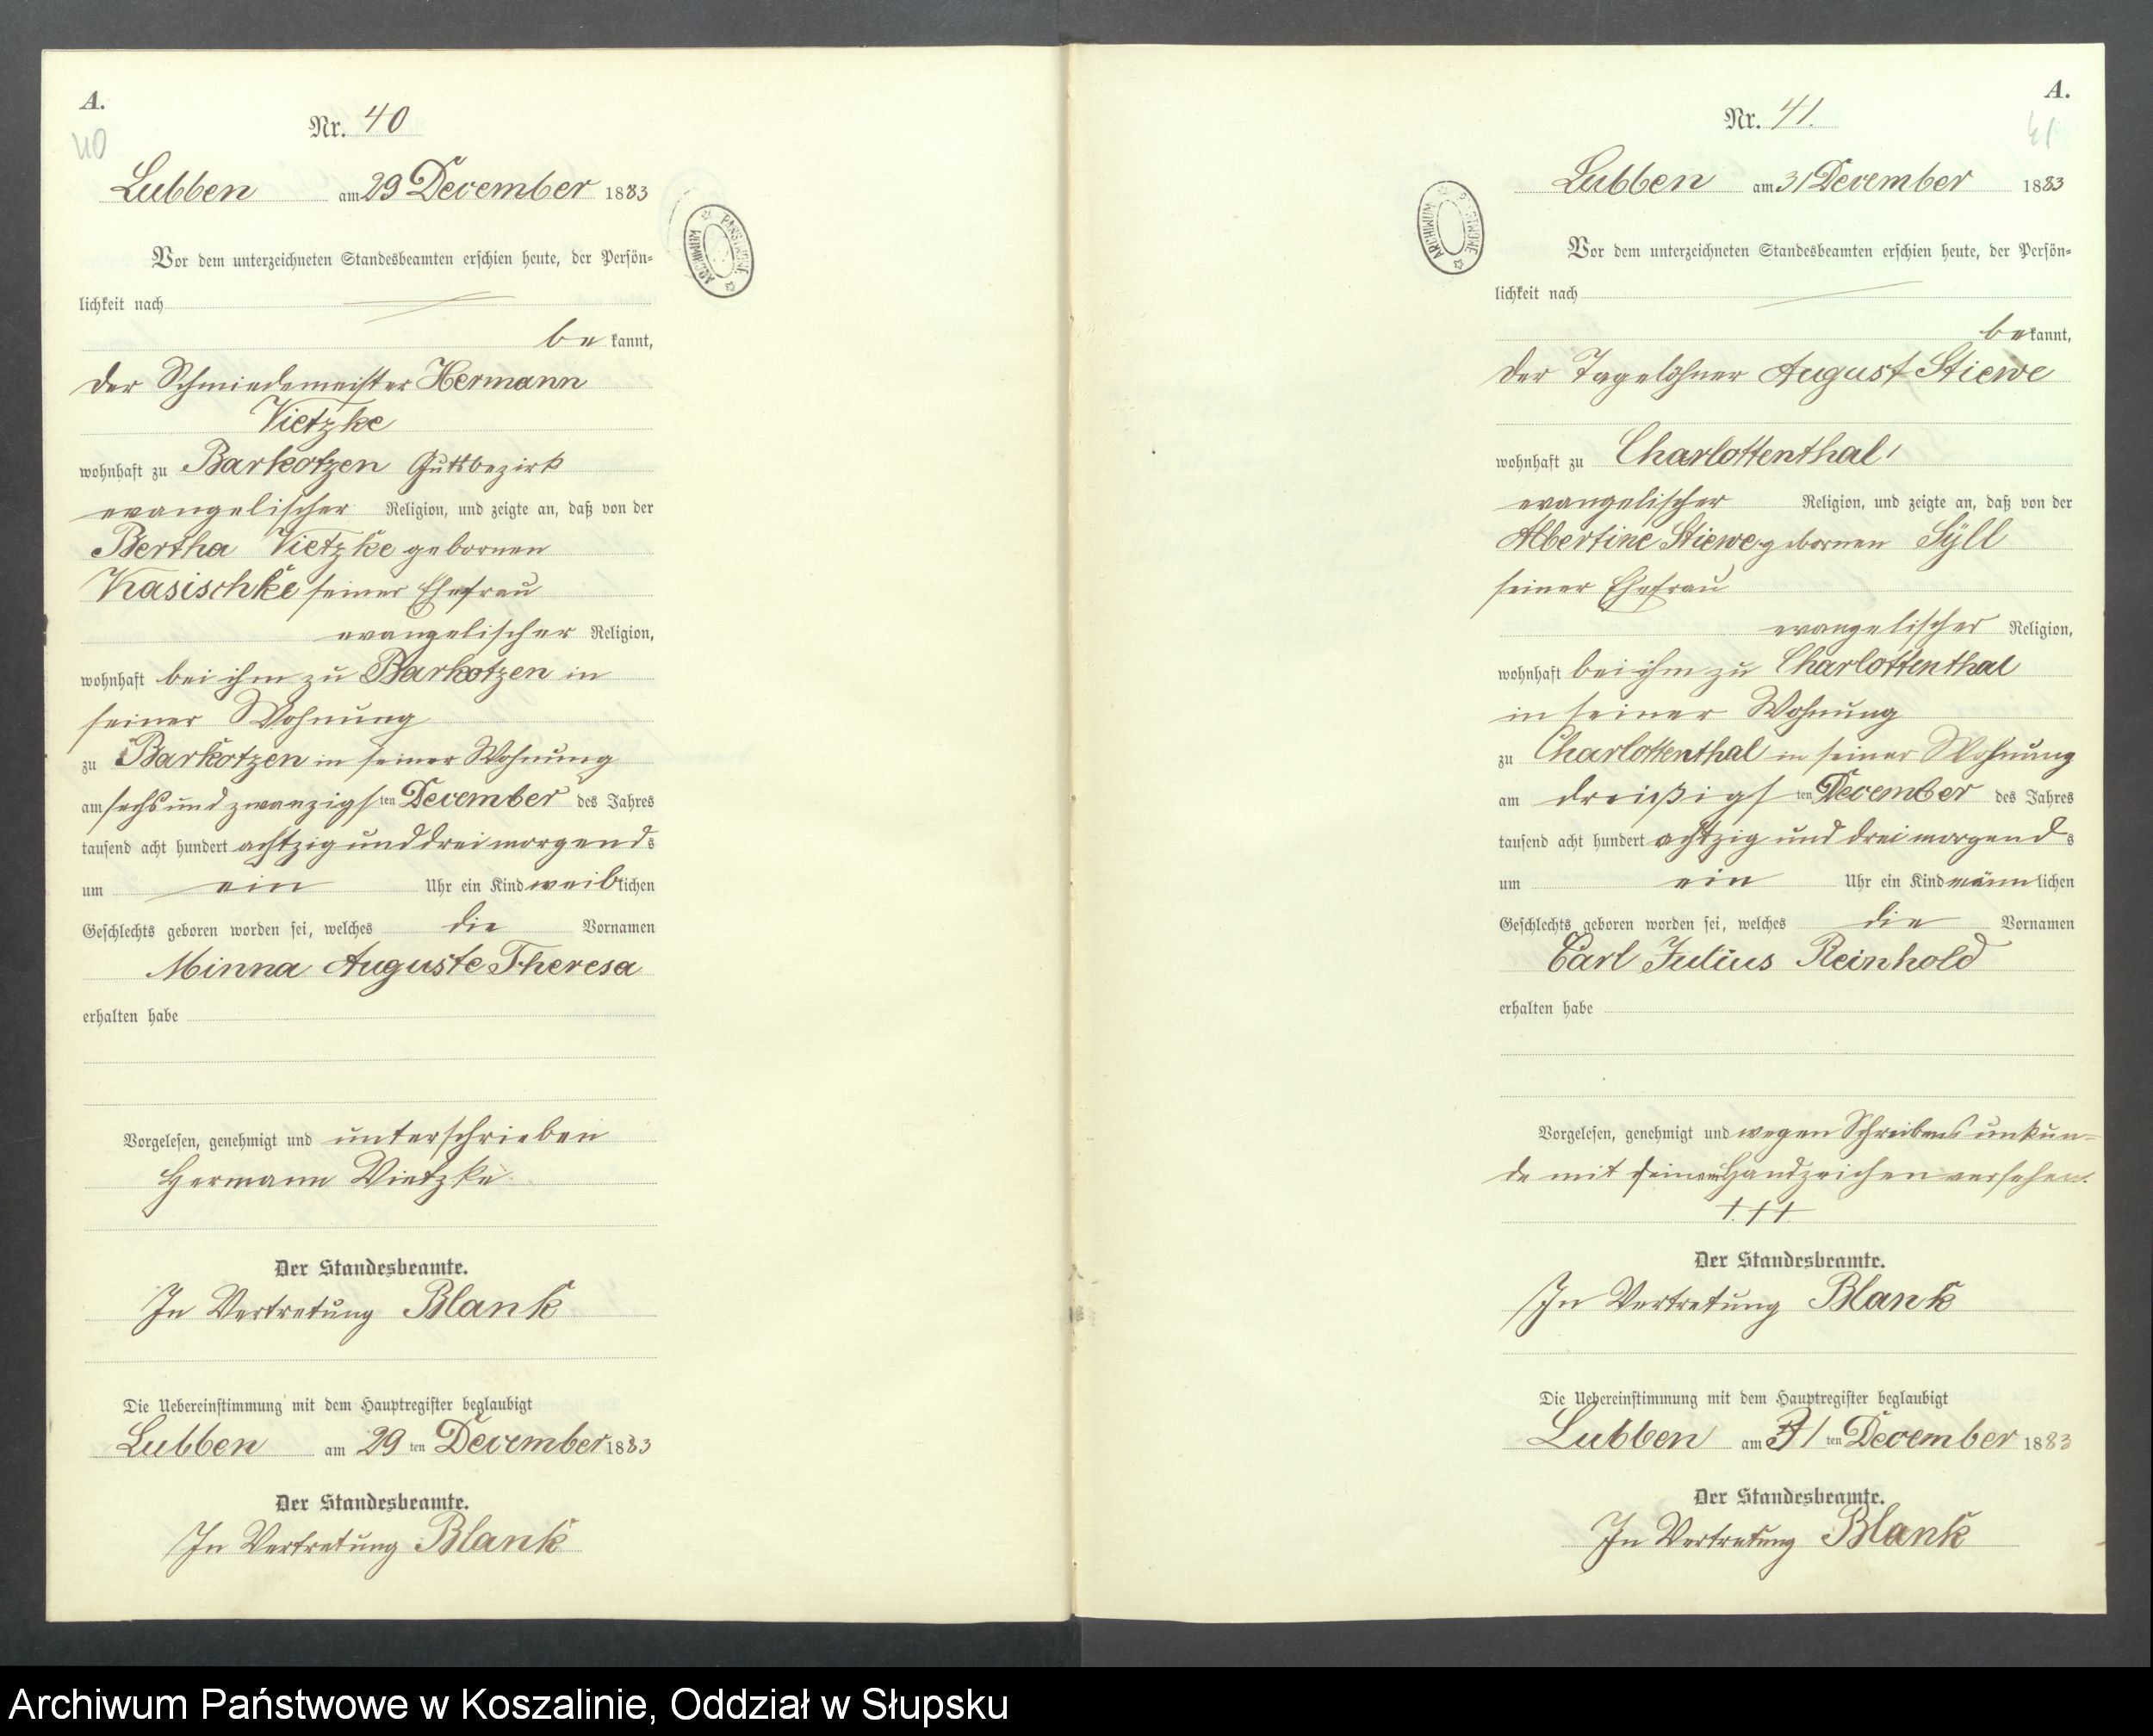 A.
40
Nr. 40
Lubben am 29 December 1883
ARCHIWUM PAŃSTWOWE
Vor dem unterzeichneten Standesbeamten erschien heute, der Persön=
lichkeit nach
be kannt,
der Schmiedemeister Hermann
Vietzke
wohnhaft zu Barkotzen Gutsbezirk
evangelischer Religion, und zeigte an, daß von der
Bertha Vietzke gebornen
Kasischke seiner Ehefrau
evangelischer Religion,
wohnhaft bei ihm zu Barkotzen in
seiner Wohnung
zu Barkotzen in seiner Wohnung
am sechs und zwanzigsten December des Jahres
tausend acht hundert achtzig und drei morgends
um ein Uhr ein Kind weiblichen
Geschlechts geboren worden sei, welches die Vornamen
Minna Auguste Theresa
erhalten habe
Vorgelesen, genehmigt und unterschrieben
Hermann Vietzke
Der Standesbeamte.
In Vertretung Blank
Die Uebereinstimmung mit dem Hauptregister beglaubigt
Lubben am 29 ten December 1883
Der Standesbeamte.
In Vertretung Blank
A.
41
Nr. 41.
Lubben am 31 December 1883
ARCHIWUM PAŃSTWOWE
Vor dem unterzeichneten Standesbeamten erschien heute, der Persön=
lichkeit nach
be kannt,
der Tagelöhner August Stiewe
wohnhaft zu Charlottenthal,
evangelischer Religion, und zeigte an, daß von der
Albertine Stiewe gebornen Syll
seiner Ehefrau
evangelischer Religion,
wohnhaft bei ihm zu Charlottenthal
in seiner Wohnung
zu Charlottenthal in seiner Wohnung
am dreißigsten December des Jahres
tausend acht hundert achtzig und drei morgends
um ein Uhr ein Kind männlichen
Geschlechts geboren worden sei, welches die Vornamen
Carl Julius Reinhold
erhalten habe
Vorgelesen, genehmigt und wegen Schreibens unkun=
de mit seinem Handzeichen versehen.
+ + +
Der Standesbeamte.
In Vertretung Blank
Die Uebereinstimmung mit dem Hauptregister beglaubigt
Lubben am 31 ten December 1883
Der Standesbeamte.
In Vertretung Blank
Archiwum Państwowe w Koszalinie, Oddział w Słupsku